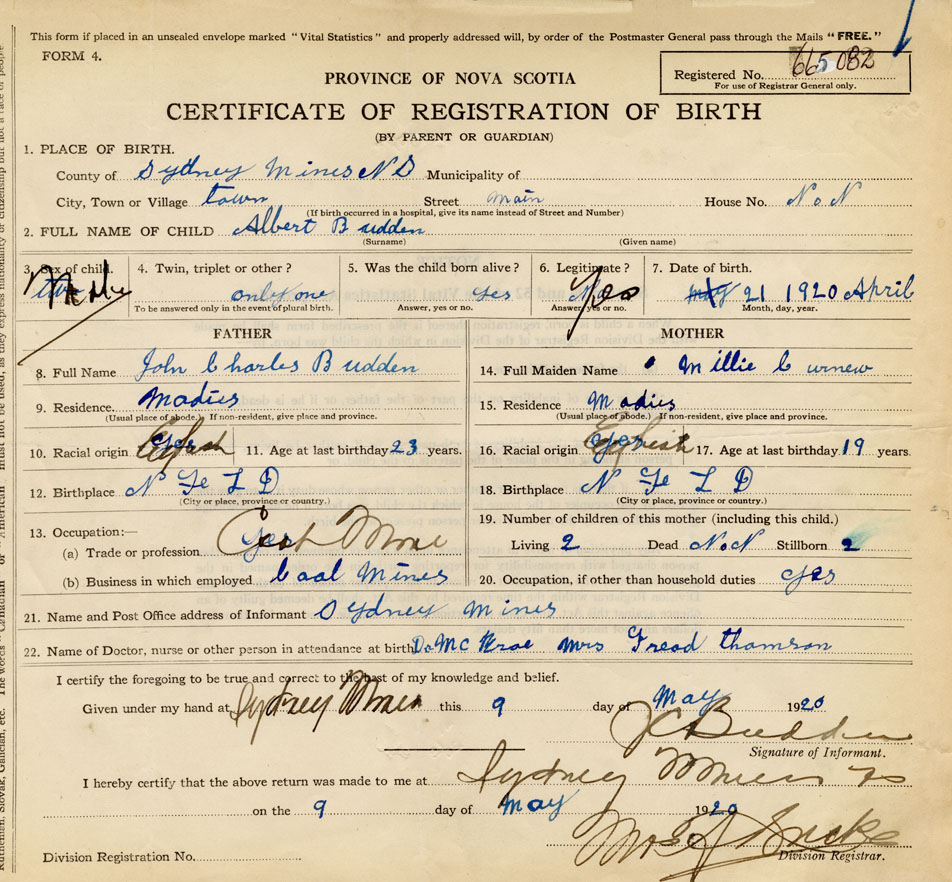 This form if placed in an unsealed envelope marked "Vital Statistics" and properly addressed will, by order of the Postmaster General pass through the Mails "FREE."
FORM 4.
Registered No. 665082
For use of Registrar General only.
PROVINCE OF NOVA SCOTIA
CERTIFICATE OF REGISTRATION OF BIRTH
(BY PARENT OR GUARDIAN)
1. PLACE OF BIRTH.
County of Sydney Mines N S Municipality of
City, Town or Village town Street main House No. NoN
(If birth occurred in a hospital, give its name instead of Street and Number)
2. FULL NAME OF CHILD Albert Budden
(Surname) (Given name)
3. Sex of child. 4. Twin, triplet or other? 5. Was the child born alive? 6. Legitimate? 7. Date of birth.
Male only one yes Yes may 21 1920 April
To be answered only in the event of plural birth. Answer, yes or no. Answer, yes or no. Month, day, year.
FATHER MOTHER
8. Full Name John Charles Budden 14. Full Maiden Name Millie Curnew
9. Residence. Madies 15. Residence Madies
(Usual place of abode.) If non-resident, give place and province. (Usual place of abode.) If non-resident, give place and province.
10. Racial origin yes 11. Age at last birthday 23 years. 16. Racial origin yes 17. Age at last birthday 19 years.
12. Birthplace N Fe L D 18. Birthplace N Fe L D
(City or place, province or country.) (City or place, province or country.)
13. Occupation:— 19. Number of children of this mother (including this child.)
(a) Trade or profession yes Living 2 Dead NoN Stillborn 2
(b) Business in which employed Coal Mines 20. Occupation, if other than household duties yes
21. Name and Post Office address of Informant Sydney Mines
22. Name of Doctor, nurse or other person in attendance at birth Mrs Fread thomson
I certify the foregoing to be true and correct to the best of my knowledge and belief.
Given under my hand at Sydney Mines this 9 day of May 1920
J C Budden
Signature of Informant.
I hereby certify that the above return was made to me at Sydney Mines
on the 9 day of May 1920
Division Registration No. Division Registrar.